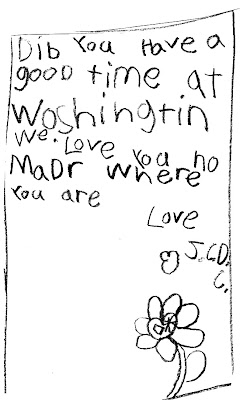 Dib You Have a
good time at
Woshingtin
We. Love You no
MaDr where
You are
Love
J.C.D.
C.